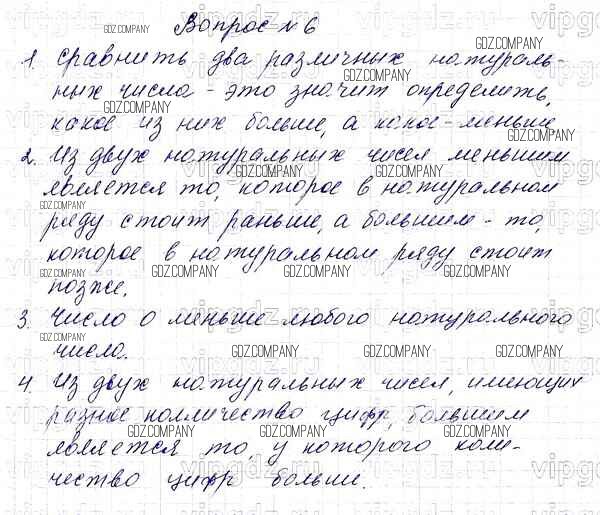 Вопрос №6
1. Сравнить два различных натураль-
ных числа - это значит определить,
какое из них больше, а какое - меньше.
2. Из двух натуральных чисел меньшим
является то, которое в натуральном
ряду стоит раньше, а большим - то,
которое в натуральном ряду стоит
позже.
3. Число 0 меньше любого натурального
числа.
4. Из двух натуральных чисел, имеющих
разное колличество цифр, большим
является то, у которого коли-
чество цифр больше.